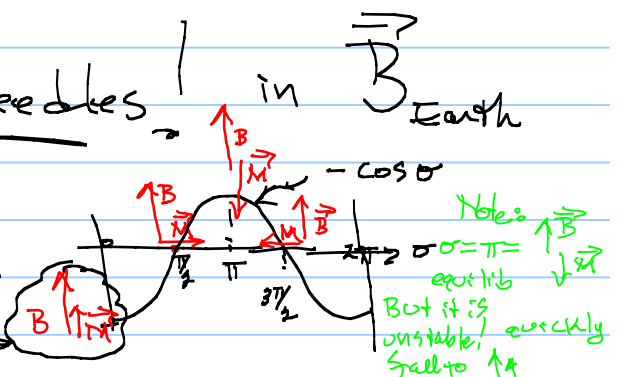 eedles! in B Earth
B
M
- cos σ
B
M
M
B
0
π/2
π
3π/2
2π
σ
B
M
Note:
σ = π =
equilib
B
M
But it is
unstable! quickly
fall to ↑↑